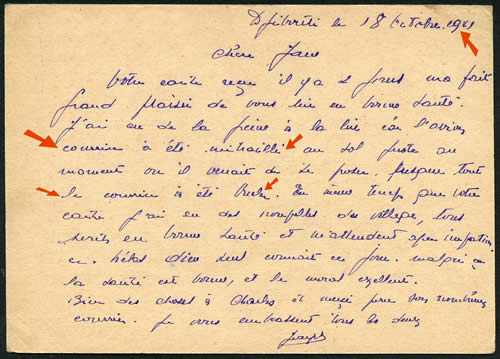 Djibouti le 18 Octobre 1941
Chère Jane
Votre carte reçue il y a 2 jours m'a fait
grand plaisir de vous lire en bonne santé.
J'ai eu de la peine à la lire car l'avion
courrier à été mitraillé au sol juste au
moment ou il venait de se poser. Presque tout
le courrier à été brulé. En même temps que votre
carte j'ai eu des nouvelles du village, tous
sont en bonne santé et m'attendent avec impatien
ce. hélas Dieu seul connait ce jour. malgré ça
la santé est bonne, et le moral excellent.
Bien des choses à Charles et merci pour son nombreux
courrier. Je vous embrassent tous les deux
Joseph